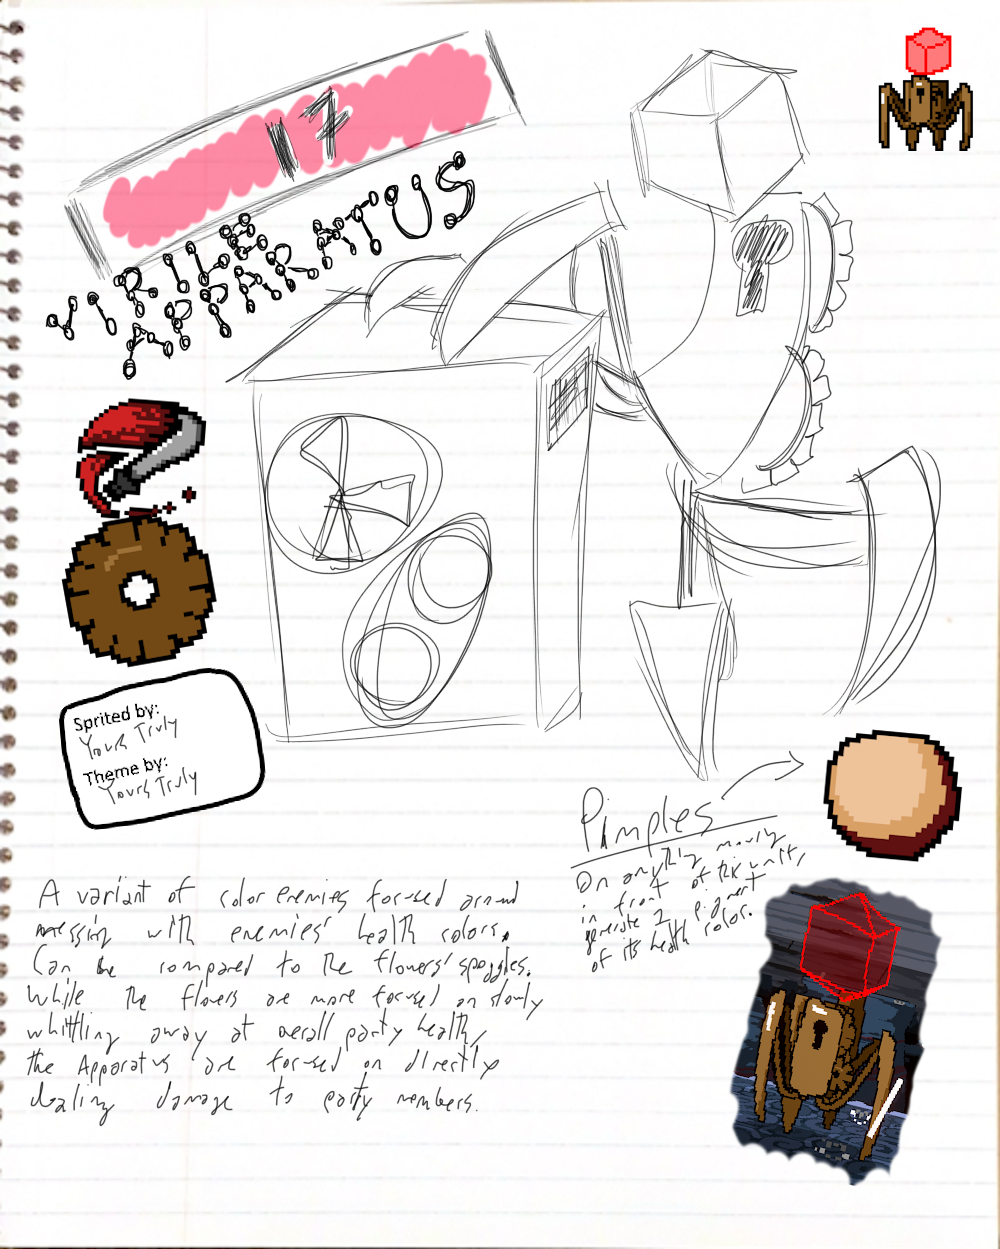 17
VIRILE
APPARATUS
Sprited by:
Yours Truly
Theme by:
Yours Truly
Pimples
On anything moving
in front of this unit,
generate 2 pigment
of its health color.
A variant of color enemies focused around
messing with enemies' health colors.
Can be compared to the flowers' spoggles.
While the flowers are more focused on slowly
whittling away at overall party health,
the Apparatus are focused on directly
dealing damage to party members.